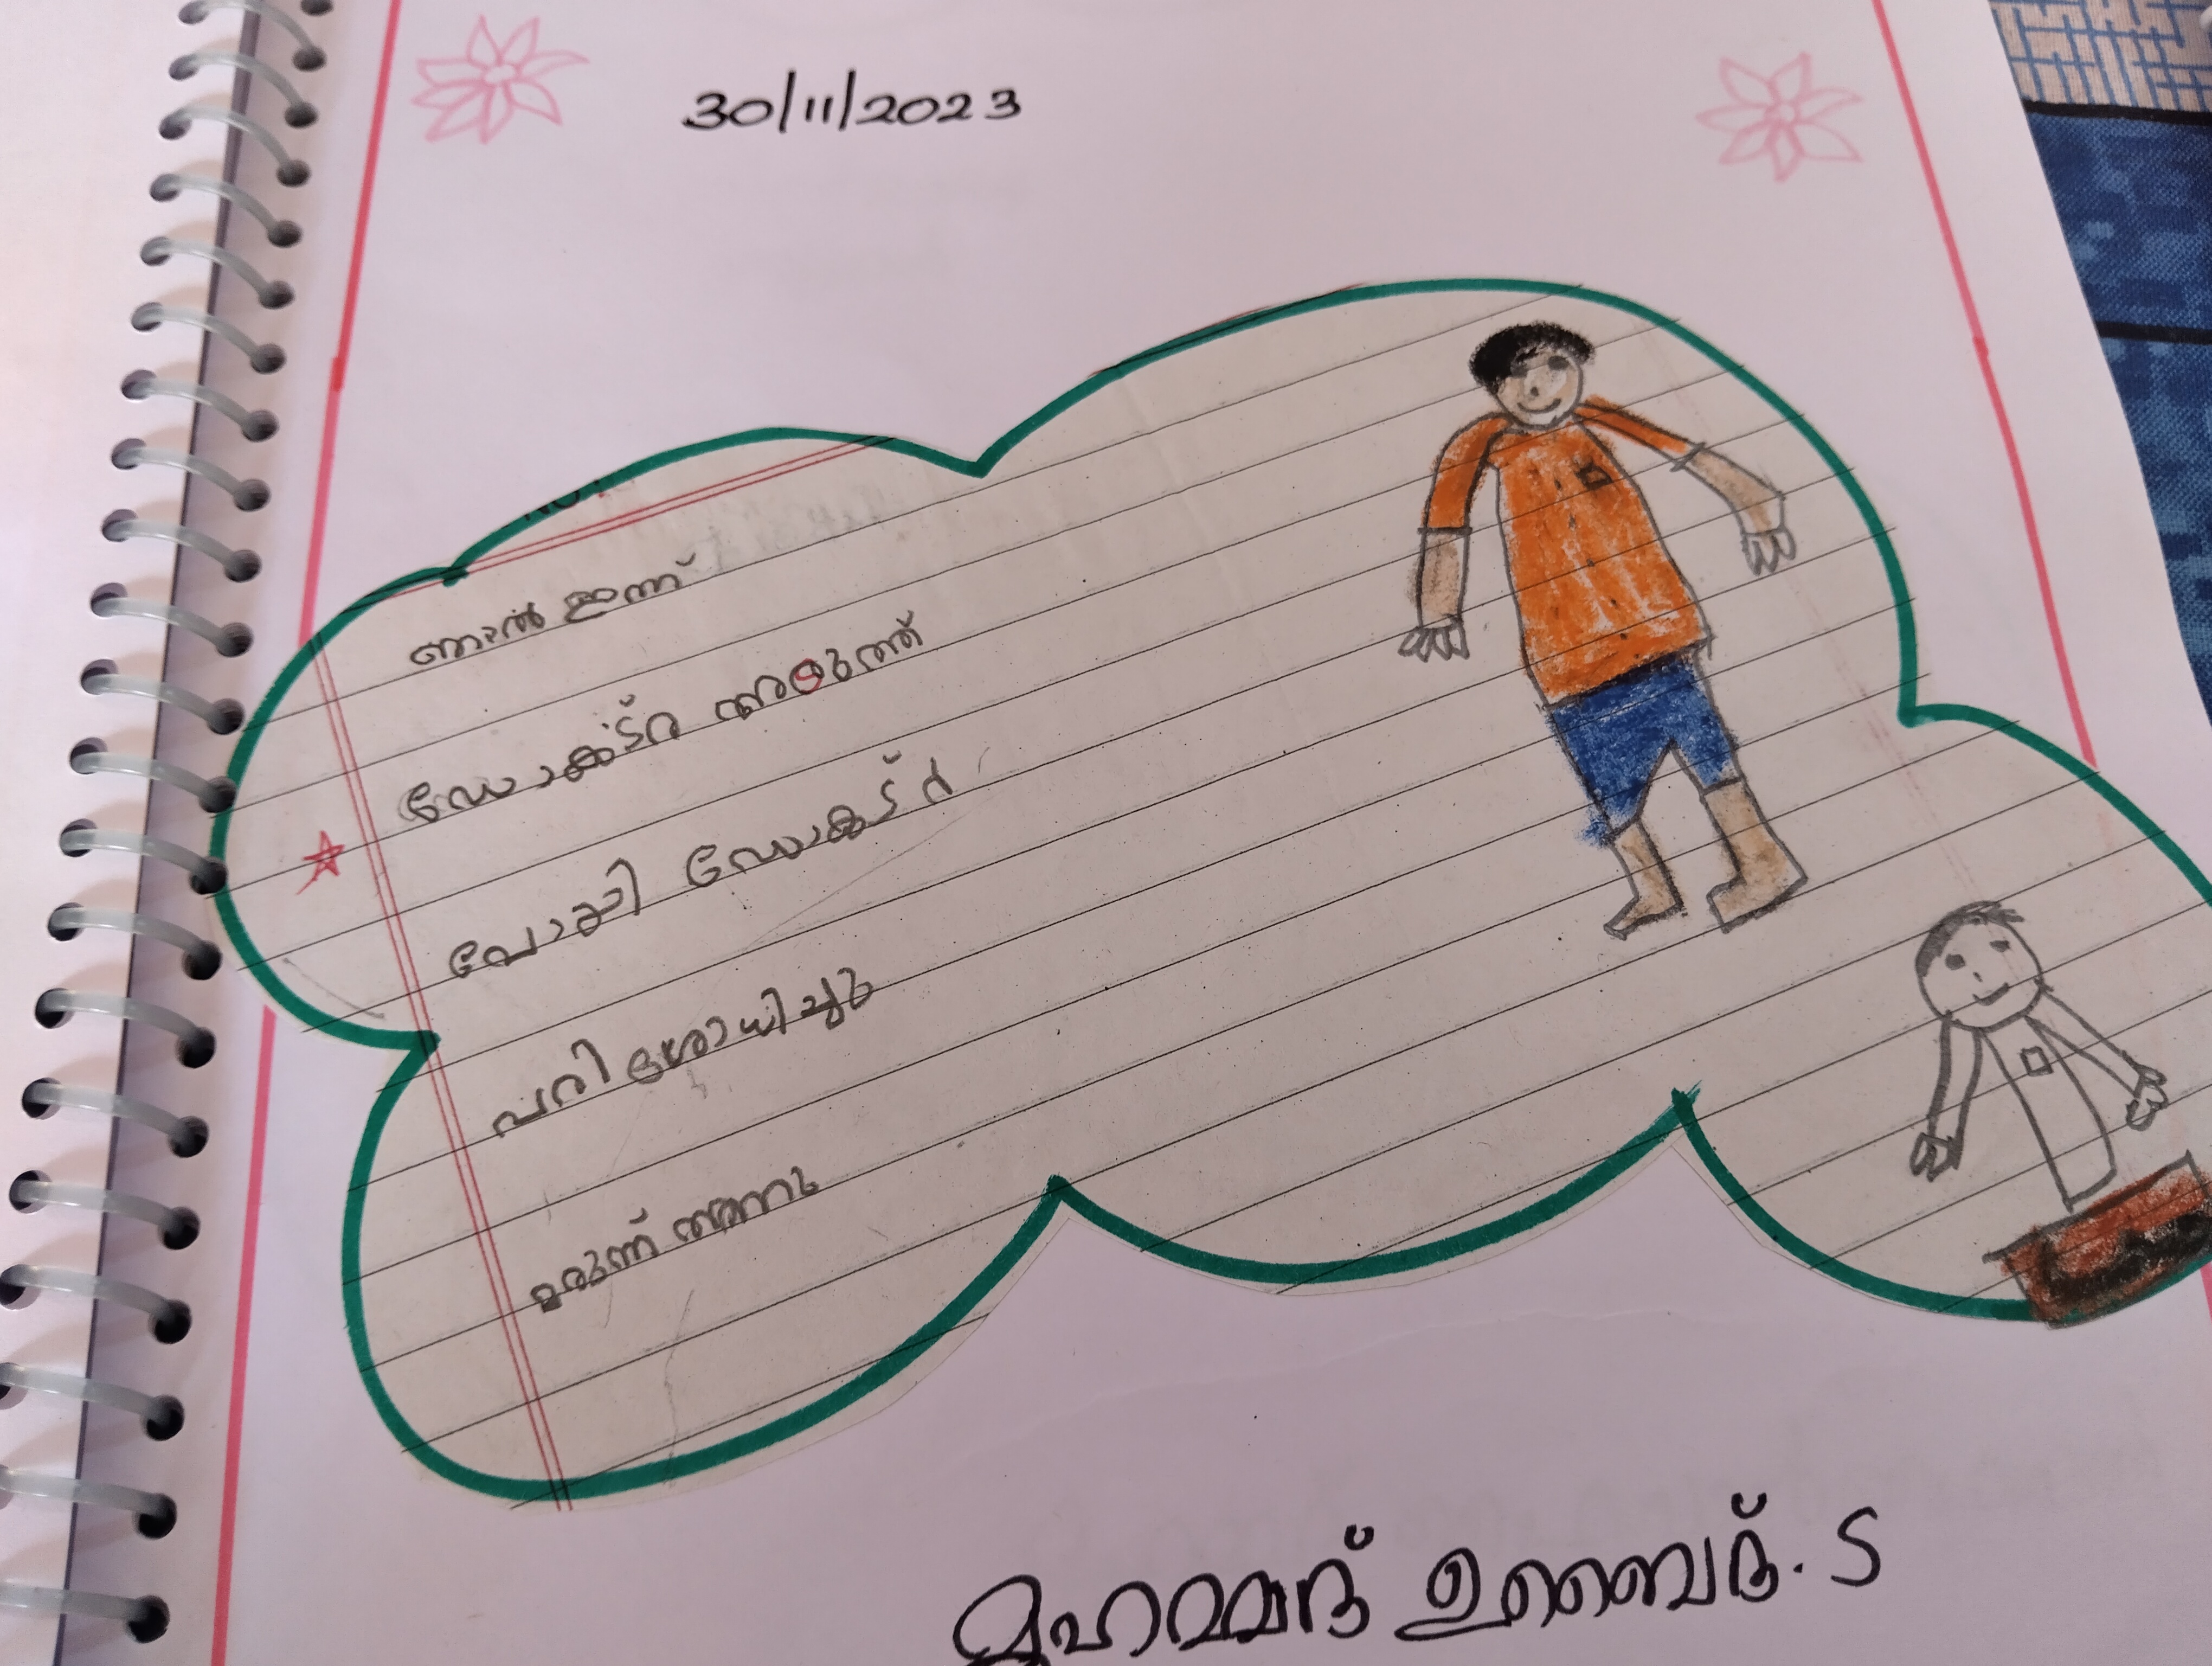 30/11/2023
ഞാൻ ഇന്ന്
ഡോക്ട്റ അടുത്ത്
പോയി ഡോക്ട്ർ
പരിശോധിച്ചു
മരുന്ന് തന്നു
മുഹമ്മദ് ഉബൈദ്. S